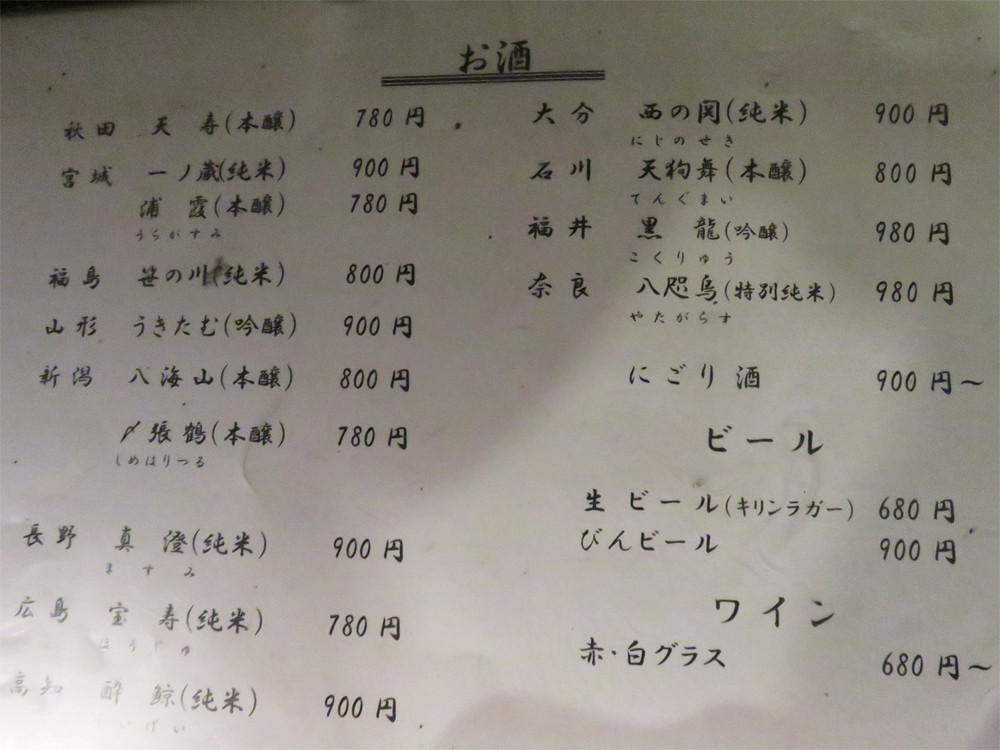 お酒
秋田 天寿(本醸) 780円
宮城 一ノ蔵(純米) 900円
浦霞(本醸) 780円
うらがすみ
福島 笹の川(純米) 800円
山形 うきたむ(吟醸) 900円
新潟 八海山(本醸) 800円
〆張鶴(本醸) 780円
しめはりつる
長野 真澄(純米) 900円
ますみ
広島 宝寿(純米) 780円
ほうじゅ
高知 酔鯨(純米) 900円
すいげい
大分 西の関(純米) 900円
にしのせき
石川 天狗舞(本醸) 800円
てんぐまい
福井 黒龍(吟醸) 980円
こくりゅう
奈良 八咫烏(特別純米) 980円
やたがらす
にごり酒 900円~
ビール
生ビール(キリンラガー) 680円
びんビール 900円
ワイン
赤・白グラス 680円~